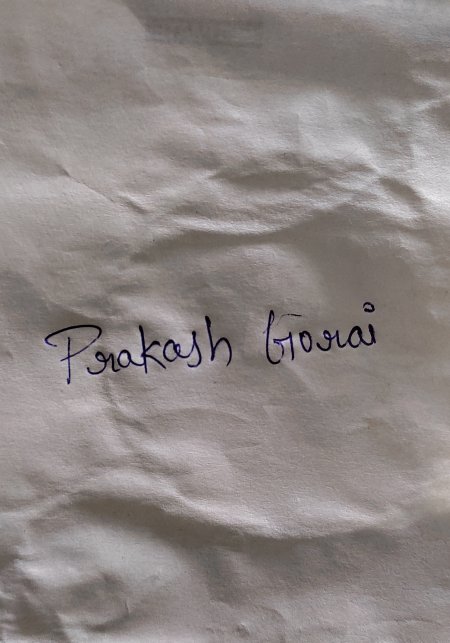 Prakash Gorai